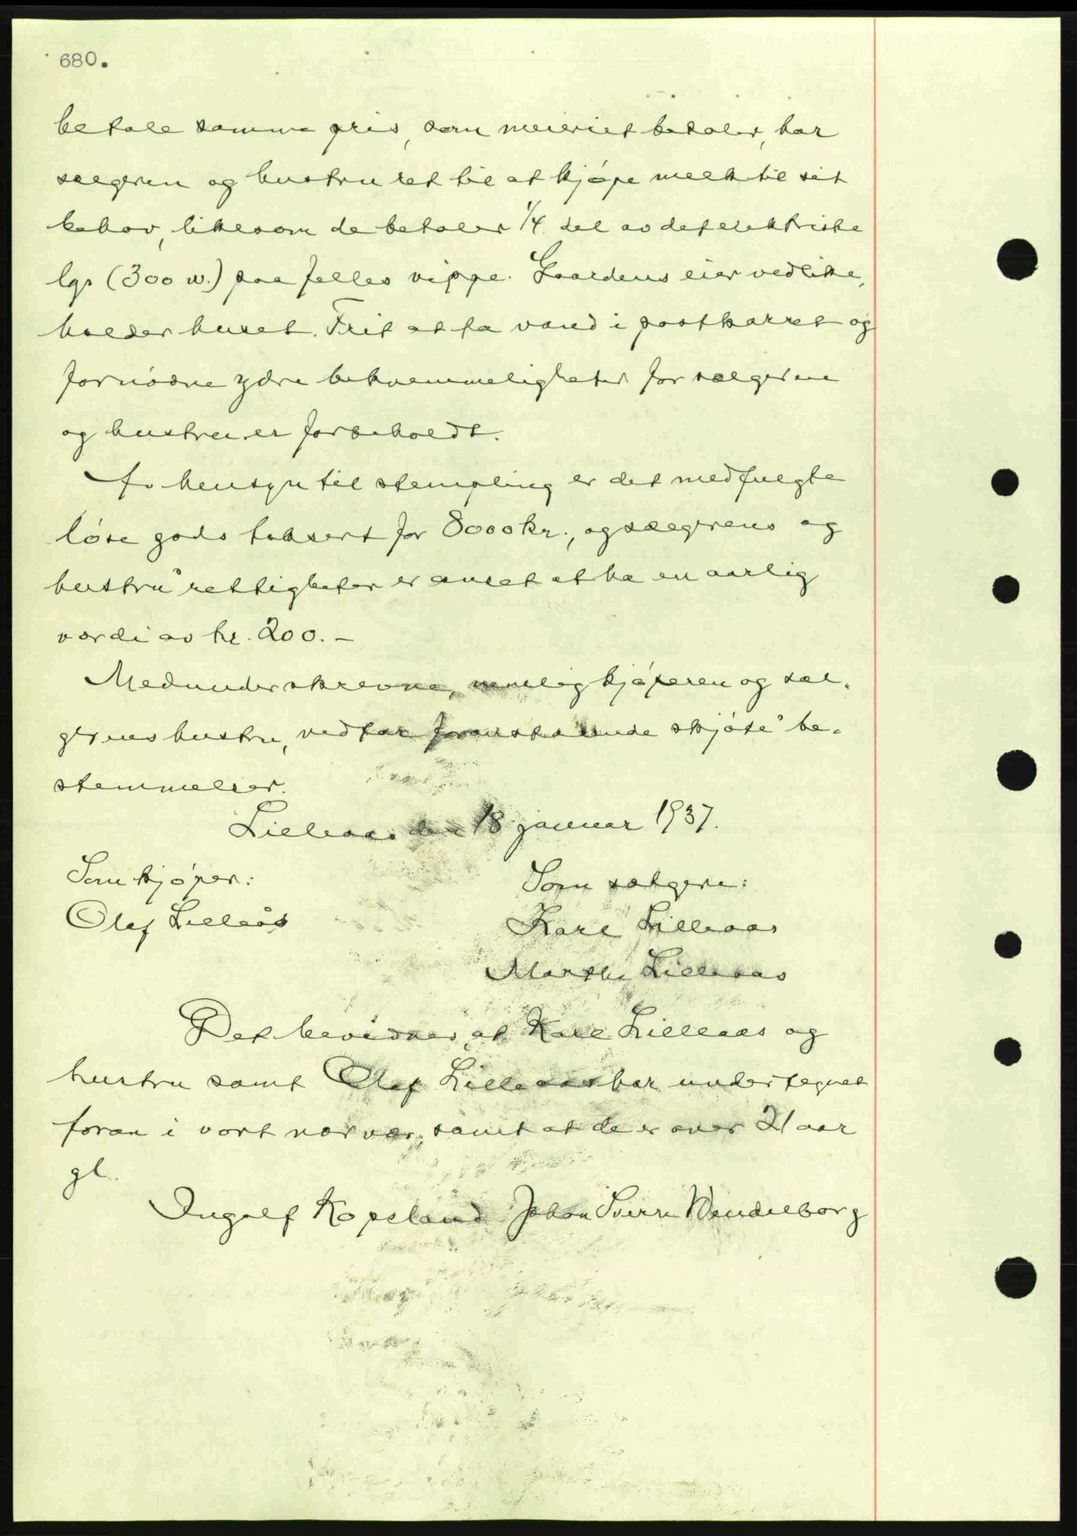 680.
betale samme pris, som meieriet betaler, har
sælgeren og hustru ret til at kjøpe melk til sit
behov, likesom de betaler 1/4 del av det elektriske
lys (300 w.) paa felles vippe. Gaardens eier vedlike-
holder huset. Frit at ta vand i postkarret og
fornødne ydre bekvemmeligheter for sælgeren
og hustru er forbeholdt.
Av hensyn til stempling er det medfulgte
løse gods taksert for 8000 kr., og sælgerens og
hustru's rettigheter er anset at ha en aarlig
værdi av kr. 200.-
Medunderskrevne, nemlig kjøperen og sæl-
gerens hustru, vedtar foranstaaende skjøte's be-
stemmelser.
Lilleaas den 18 januar 1937.
Som kjøper:
Olaf Lilleås
Som sælgere:
Karl Lilleaas
Marthe Lilleaas
Det bevidnes at Karl Lilleaas og
hustru samt Olaf Lilleaas har undertegnet
foran i vort nærvær, samt at de er over 21 aar
gl.
Ingolf Kopeland Johan Sverre Wendelborg